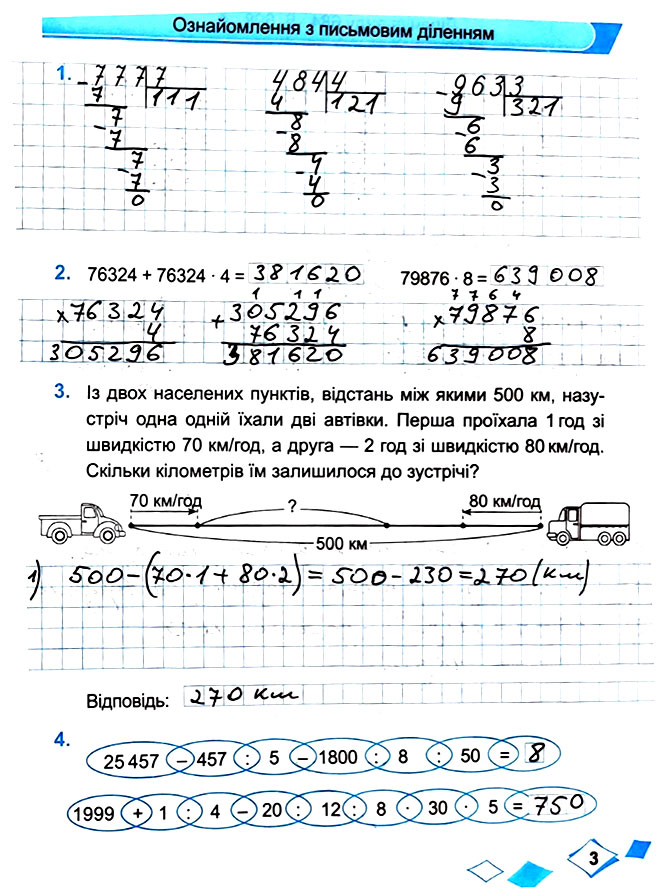 Ознайомлення з письмовим діленням
1.
- 7 7 7 7 4 8 4 4 - 9 6 3 3
7 111 4 121 9 321
7 8 6
- 7 - 8 - 6
7 4 3
- 7 - 4 - 3
0 0 0
2. 76324 + 76324 · 4 = 381620 79876 · 8 = 639008
1 1 1 7 7 6 4
× 76324 + 305296 × 79876
4 76324 8
305296 381620 639008
3. Із двох населених пунктів, відстань між якими 500 км, назу-
стріч одна одній їхали дві автівки. Перша проїхала 1 год зі
швидкістю 70 км/год, а друга — 2 год зі швидкістю 80 км/год.
Скільки кілометрів їм залишилося до зустрічі?
70 км/год ? 80 км/год
500 км
1) 500 - (70 · 1 + 80 · 2) = 500 - 230 = 270 (км)
Відповідь: 270 км
4.
25 457 – 457 : 5 – 1800 : 8 : 50 = 8
1999 + 1 : 4 – 20 : 12 : 8 · 30 · 5 = 750
3